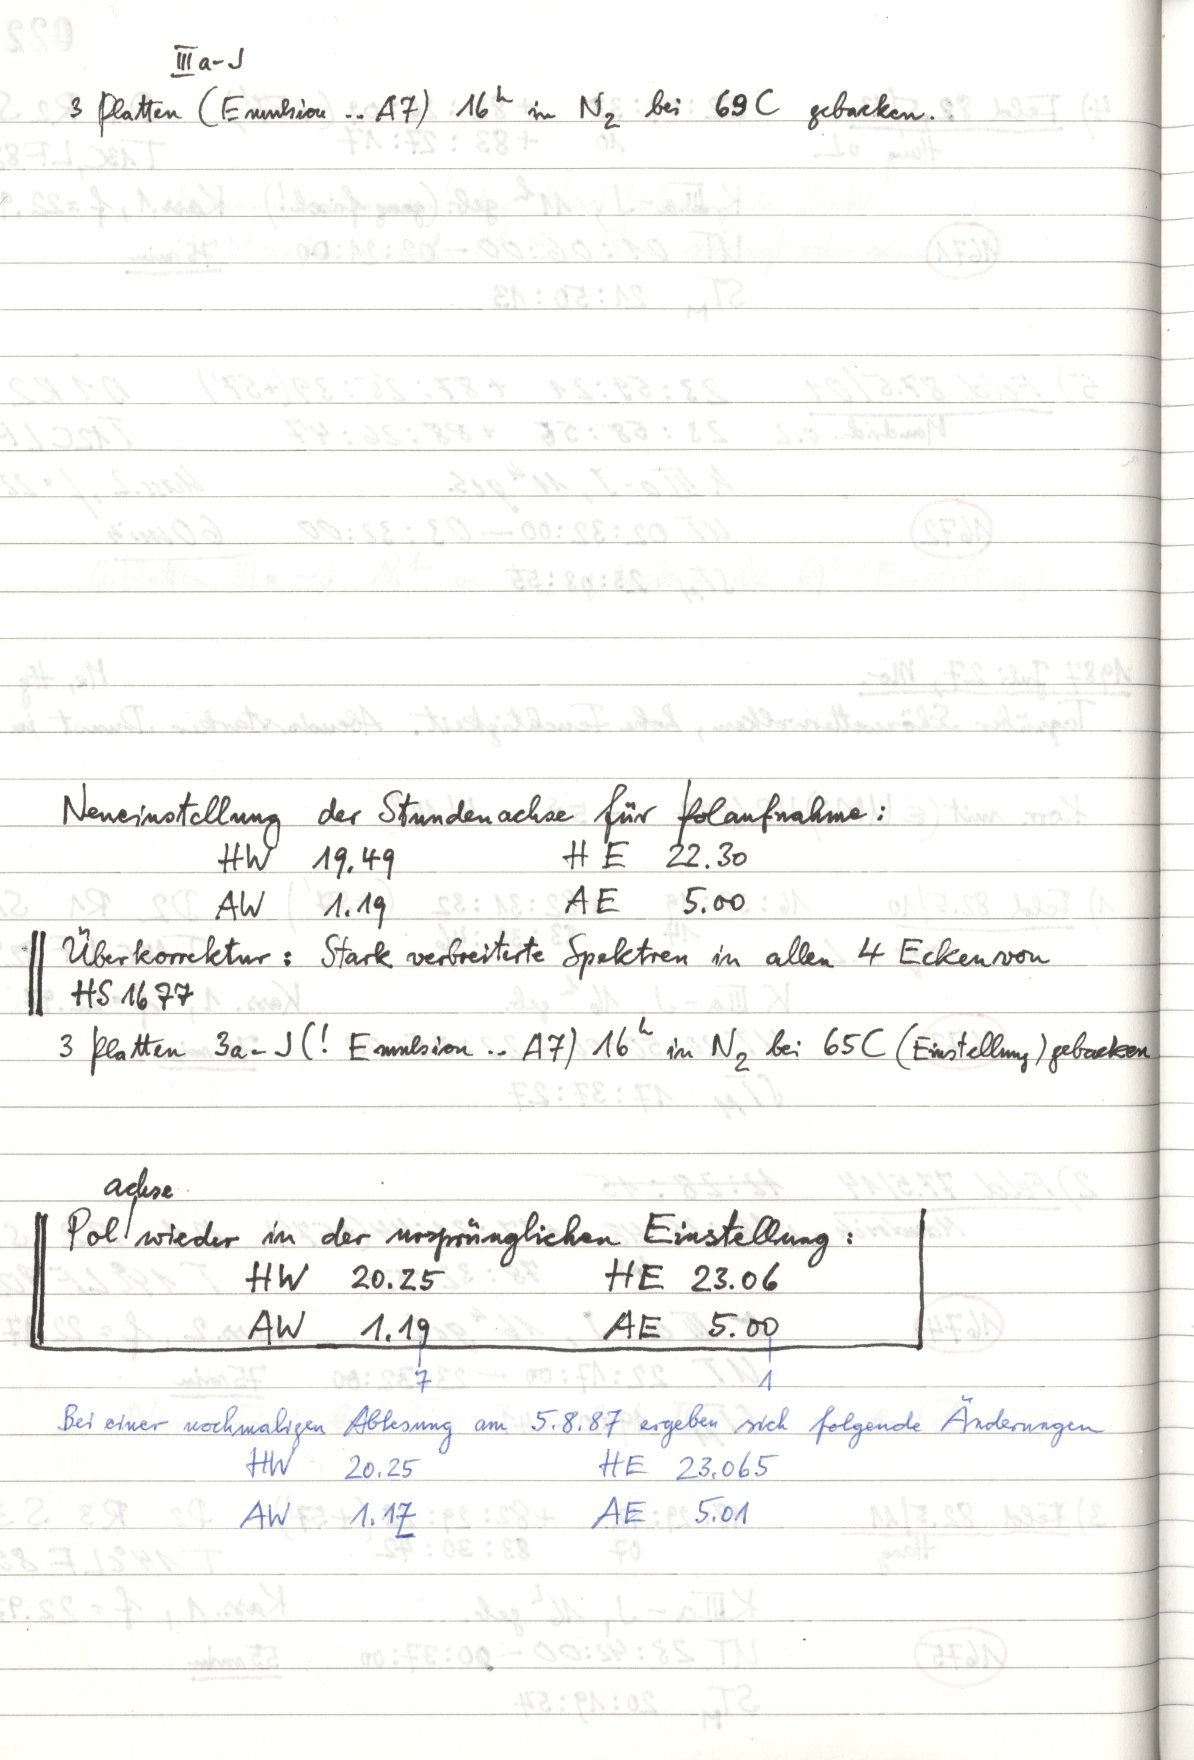 IIIa-J
3 Platten (Emulsion .. A7) 16h in N2 bei 69C gebacken.
Neueinstellung der Stundenachse für Polaufnahme:
HW 19.49 HE 22.30
AW 1.19 AE 5.00
Überkorrektur: Stark verbreiterte Spektren in allen 4 Ecken von
HS 1677
3 Platten 3a-J (! Emulsion .. A7) 16h in N2 bei 65C (Einstellung) gebacken
achse
Pol wieder in der ursprünglichen Einstellung:
HW 20.25 HE 23.06
AW 1.19 AE 5.00
7 1
Bei einer nochmaligen Ablesung am 5.8.87 ergeben sich folgende Änderungen
HW 20.25 HE 23.065
AW 1.17 AE 5.01